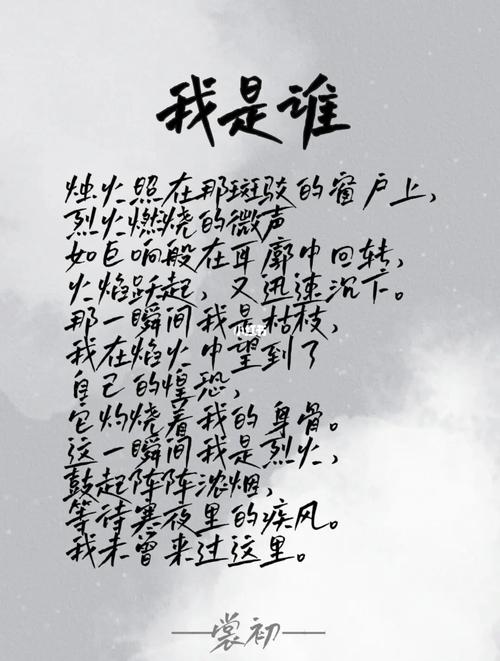 我是谁
烛火照在那斑驳的窗户上，
烈火燃烧的微声
如巨响般在耳廓中回转，
火焰跃起，又迅速沉下。
那一瞬间我是枯枝，
小红书
我在焰火中望到了
自己的惶恐，
它灼烧着我的身骨。
这一瞬间我是烈火，
鼓起阵阵浓烟，
等待寒夜里的疾风。
我未曾来过这里。
裳初